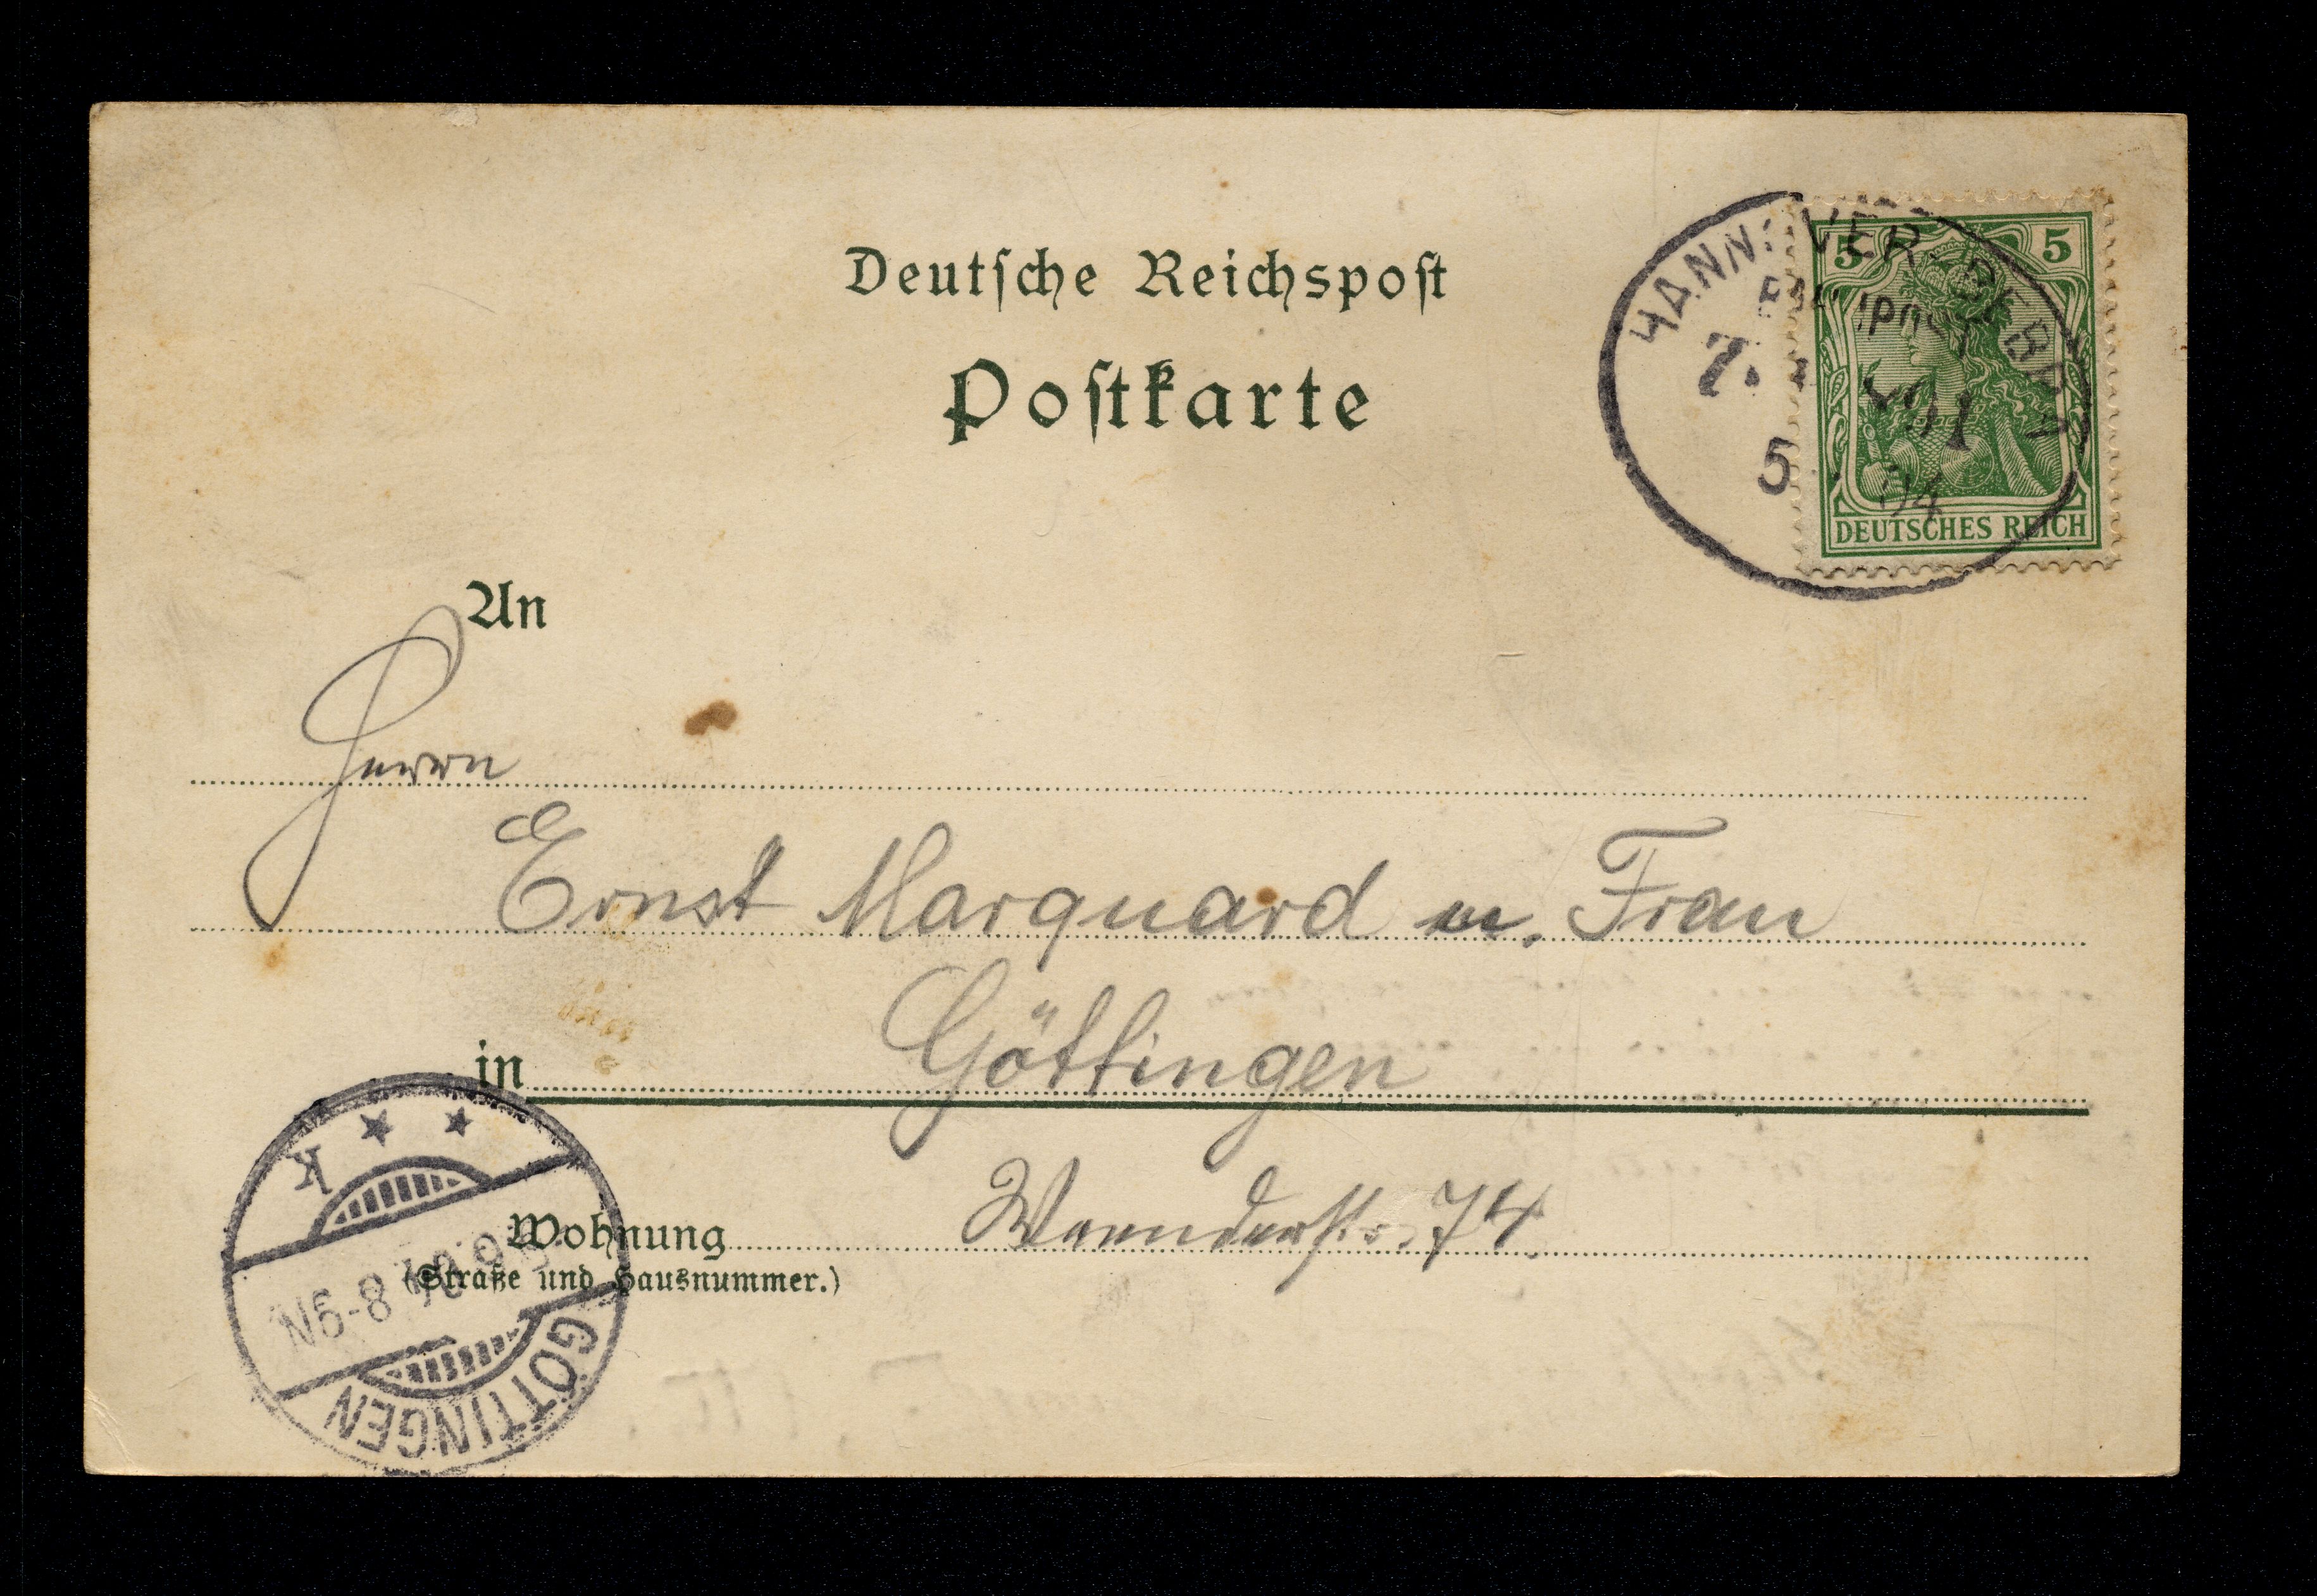 Deutsche Reichspost
Postkarte
5 5
DEUTSCHES REICH
HANNOVER-BEBRA
BAHNPOST
7.
5 04
An
Herrn
Ernst Marquard u. Frau
in Göttingen
Wohnung Weenderstr. 74.
(Straße und Hausnummer.)
GÖTTINGEN
6-8N
* * K